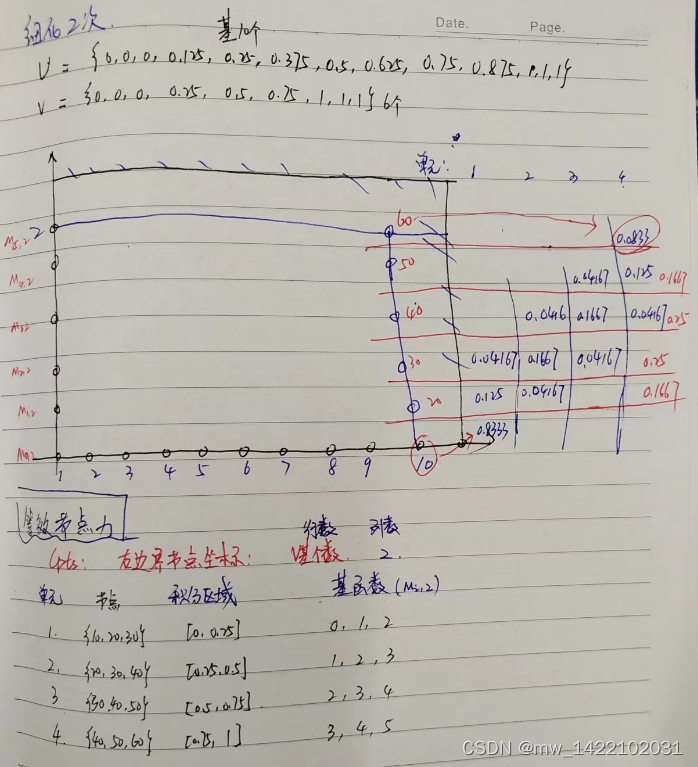 细化2次.
基10个
Date.
Page.
U = {0,0,0, 0.125, 0.25, 0.375, 0.5, 0.625, 0.75, 0.875, 1,1,1}
V = {0,0,0, 0.25, 0.5, 0.75, 1,1,1} 6个
单元: 1 2 3 4
2
M5,2
60
0.0833
M4,2
50
0.04167 0.125 0.1667
M3,2
40
0.0416 0.1667 0.04167 0.25
M2,2
30
0.04167 0.1667 0.04167 0.25
M1,2
20
0.125 0.04167 0.1667
M0,2
0.8333
1 2 3 4 5 6 7 8 9 10
等效节点力
行数 列数
Cpts: 右边界节点坐标: V基个数. 2.
单元 节点 积分区域 基函数 (Mi,2)
1. {10,20,30} [0, 0.25] 0, 1, 2
2. {20,30,40} [0.25,0.5] 1, 2, 3
3 {30,40,50} [0.5,0.75] 2, 3, 4
4. {40,50,60} [0.75, 1] 3, 4, 5
CSDN @mw_1422102031